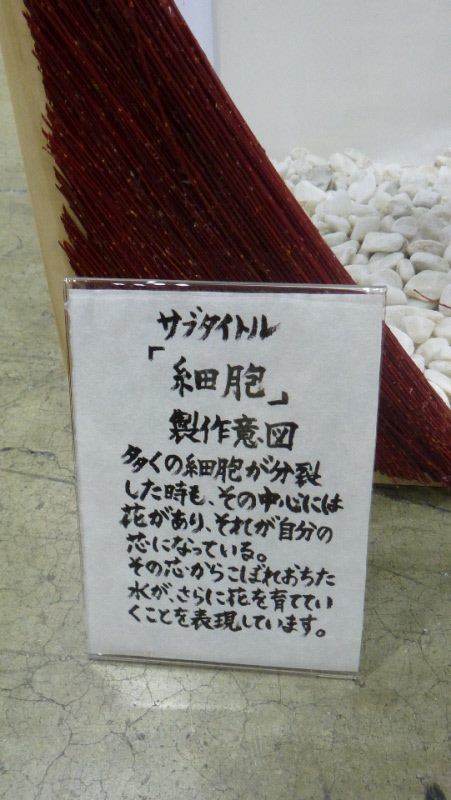 サブタイトル
「細胞」
製作意図
多くの細胞が分裂
した時も、その中心には
花があり、それが自分の
芯になっている。
その芯からこぼれおちた
水が、さらに花を育ててい
くことを表現しています。